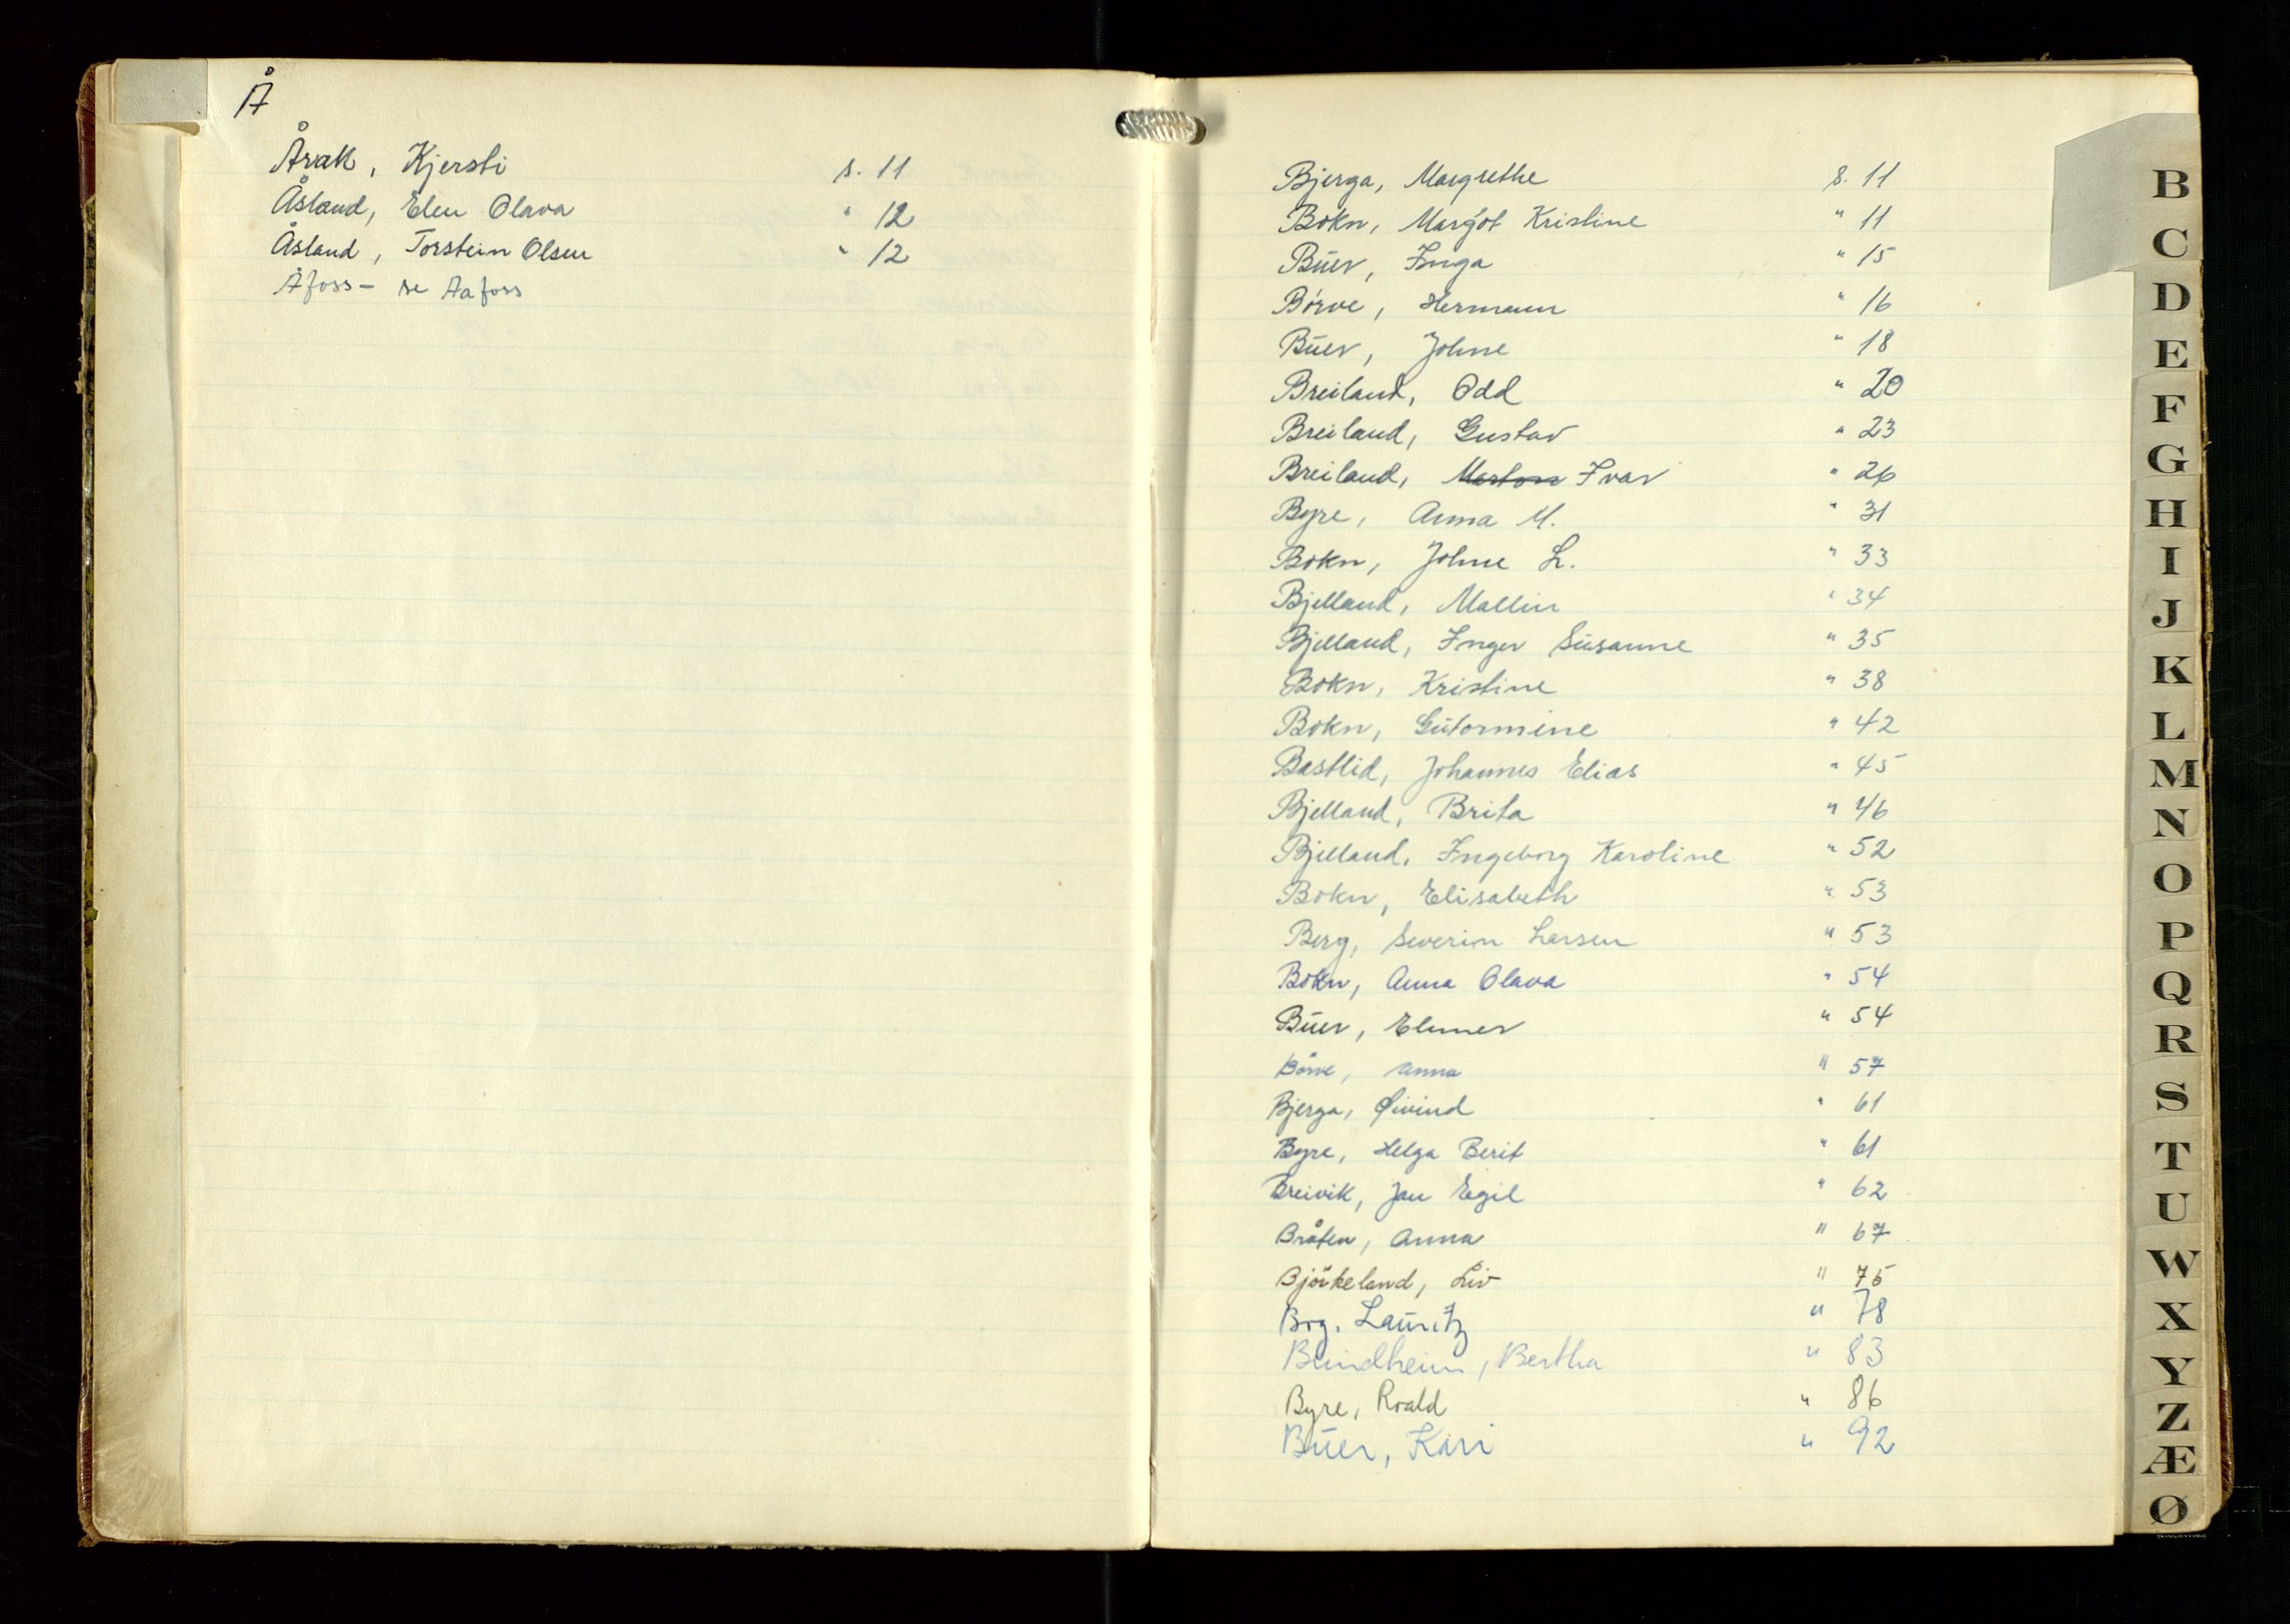 Å
Årak, Kjersti s. 11
Åsland, Elen Olava " 12
Åsland, Torstein Olsen " 12
Åfoss - se Aafoss
Bjerga, Margrethe s. 11
Bokn, Margot Kristine " 11
Buer, Inga " 15
Börve, Hermann " 16
Buer, Johne " 18
Breiland, Odd " 20
Breiland, Gustav " 23
Breiland, Ivar " 26
Byre, Anna M. " 31
Bokn, Johne L. " 33
Bjelland, Mallin " 34
Bjelland, Inger Susanne " 35
Bokn, Kristine " 38
Bokn, Gutormine " 42
Bastlid, Johannes Elias " 45
Bjelland, Brita " 46
Bjelland, Ingeborg Karoline " 52
Bokn, Elisabeth " 53
Berg, Severin Larsen " 53
Bokn, Anna Olava " 54
Buer, Elmer " 54
Börve, Anna " 57
Bjerga, Øivind " 61
Byre, Helga Berit " 61
Breivik, Jan Egil " 62
Bråten, Anna " 67
Björkeland, Liv " 75
Brg. Lauritz " 78
Blindheim, Bertha " 83
Byre, Roald " 86
Buer, Kari " 92
B
C
D
E
F
G
H
I
J
K
L
M
N
O
P
Q
R
S
T
U
W
X
Y
Z
Æ
Ø